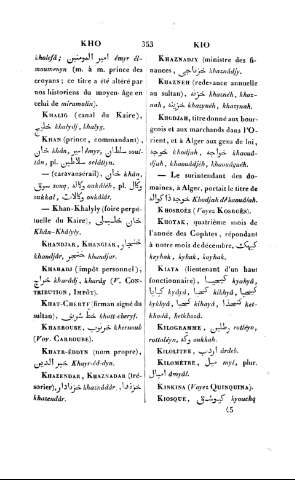 KHO 353 KIO
khalefâ; أمير المومنين émyr êl-
moumenyn (m. à m. prince des
croyans; ce titre a été altéré par
nos historiens du moyen-âge en
celui de miramolin).
KHALIG (canal du Kaire),
خليج khalydj, khalyg.
KHAN (prince, commandant),
خان khân, امير émyr, سلطان soul-
tân, pl. سلاطين selâtyn.
— (caravanserail), خان khân,
سوق souq, وكالة oukâléh, pl.
sukkal, وكالات oukâlât.
— Khan-Khalyly (foire perpé-
tuelle du Kaire), خان خليلى
Khân-Khalyly.
KHANDJAR, KHANGIAR, خنجار
khandjâr, خنجر khandjar.
KHARADJ (impôt personnel),
خراج kharâdj, kharâg (V. CON-
TRIBUTION, IMPÔT).
KHAT-CHERYF (firman signé du
sultan), خط شريف khatt-cheryf.
KHAROUBE, خرنوب kharnoub
(Voy. CAROUBE).
KHAYR-ÊDDYN (nom propre),
خير الدين Khayr-éd-dyn.
KHAZENDAR, KHAZNADAR (tré-
sorier), خزندار khaznâdâr, خزندار
khazendâr.
KHAZNADJY (ministre des fi-
nances, خزناجى khaznâdjy.
KHAZNEH (redevance annuelle
au sultan), خزنه khaznéh, khaz-
nah, خزينه khazynéh, khazynah.
KHODJAH, titre donné aux bour-
geois et aux marchands dans l'O-
rient, et à Alger aux gens de loi,
خوجه khodjah, خواجه khaouâd-
jah, khaouâdjéh, khaouâgéh.
— Le surintendant des do-
maines, à Alger, portait le titre de
Khodjah
KHOSROËS (Voyez KOSROËS).
KHOYAK, quatrième mois de
l'année des Cophtes, répondant
à notre mois de décembre, كيهك
keyhak, kyhak, koyhak.
KIAYA (lieutenant d'un haut
fonctionnaire), كيحيا kyahyâ,
كيايا kyâyâ, كيخيا kikhyâ,
kykhyâ, كخيا kihayâ, كتخدا ket-
khodâ, ketkhodâ.
KILOGRAMME, رطلين rotléyn,
rottoléyn, وكه oukkah.
KILOLITRE, اردب ârdeb.
KILOMÈTRE, ميل myl, plur.
اميال âmyâl.
KINKINA (Voyez QUINQUINA).
KIOSQUE, كيوشك kyouchq
45